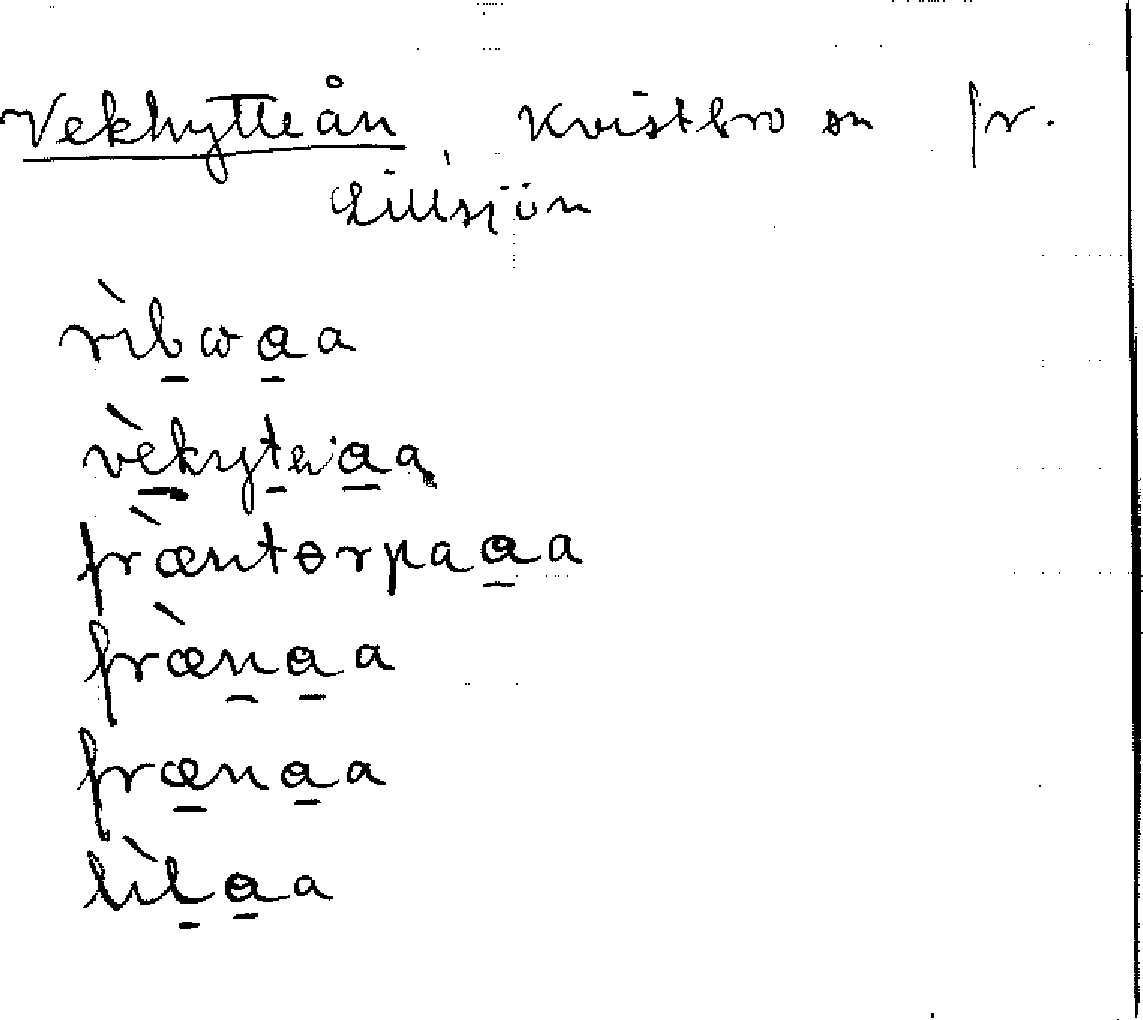 Vekhytteån, Kvistbro sn fr.
Lillsjön
rìbωa̲a
vèkytea̲a
fræ̀ntɵrpaa̲a
fræ̀n̲a̲a
fræ̲na̲a
lìl̲a̲a